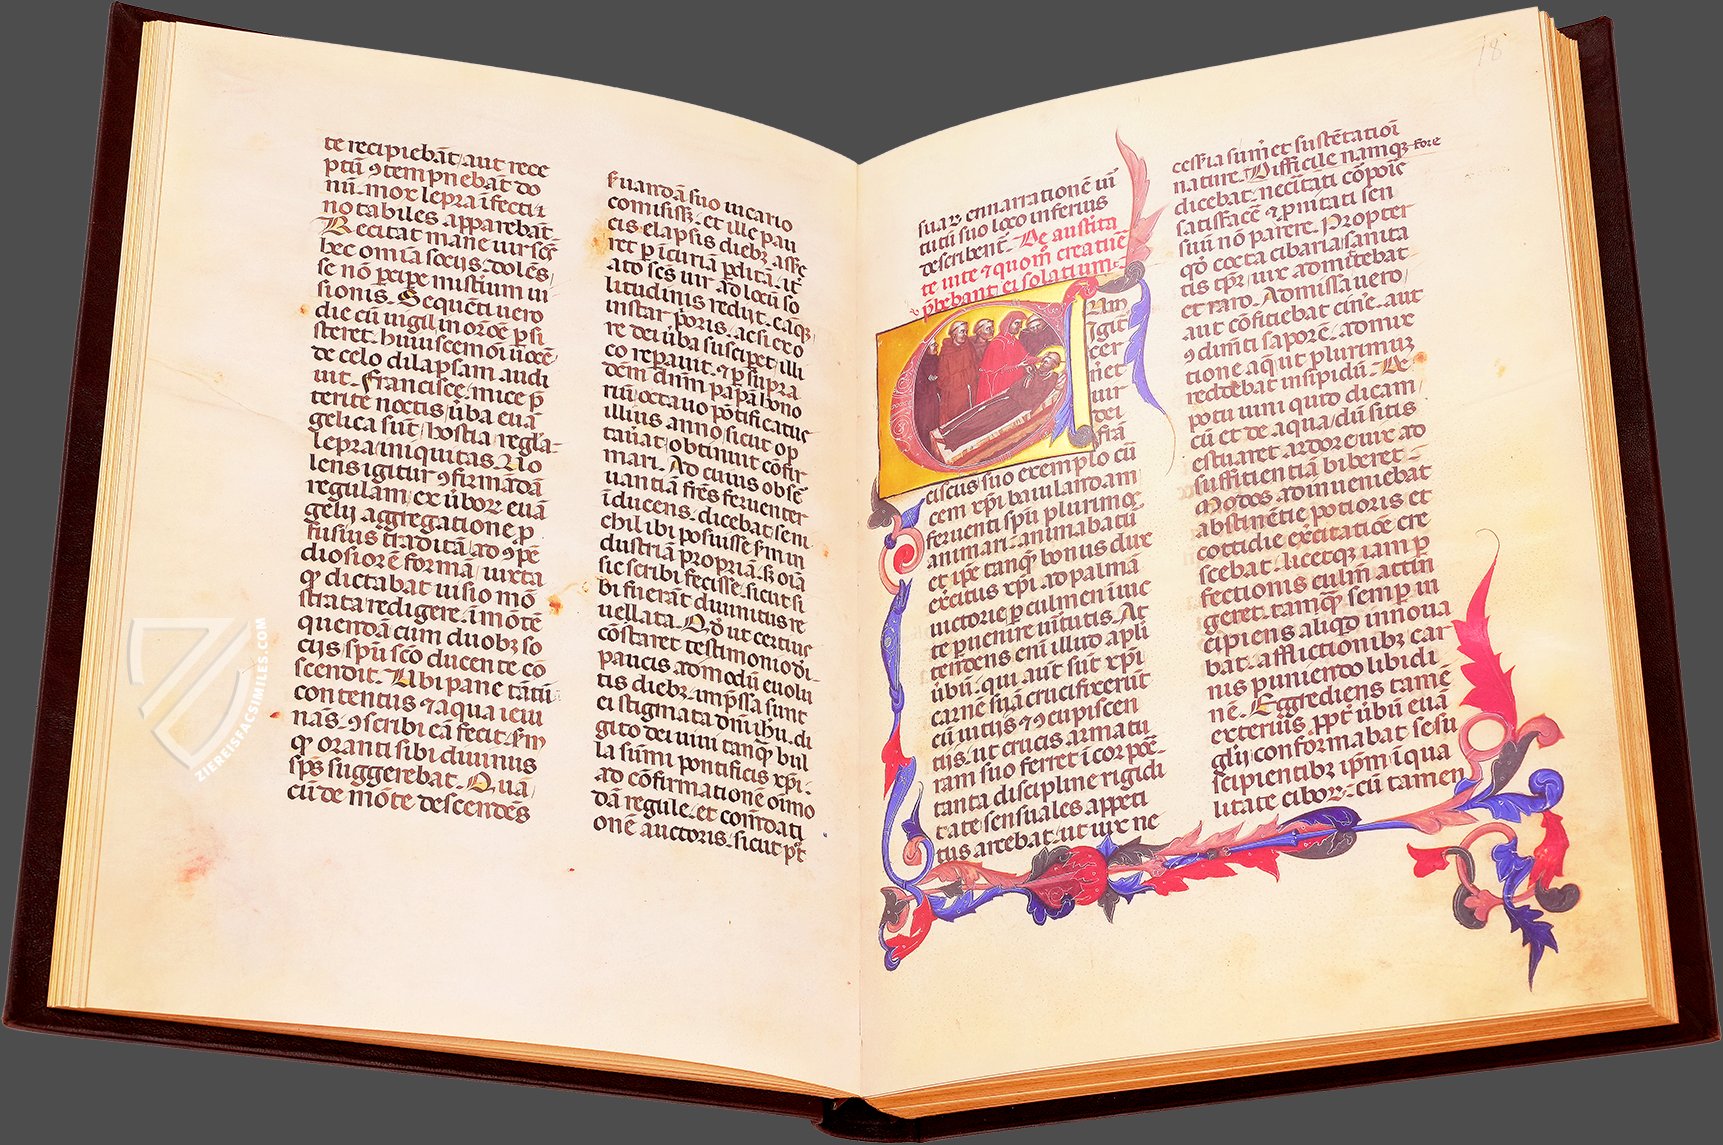 te recipiebāt, aut rece
ptū ꝯtempnebāt do
nū. mox lepra īfecti ⁊
notabiles apparebāt.
Recitat mane uir scs̄
hec omīa socijs. dolēs,
se nō pcipe misterium ui
sionis. Sequēti uero
die cū uigil in orōe psi
steret. huiuscemōi uocē
de celo dilapsam audi
uit. Francisce, mice p̄
terite noctis ūba euā
gelica sūt, hostia regla.
lepra iniquitas. Uo
lens igitur ꝯfirmādā
regulam, ex ūborꝝ euā
gelij aggregatione p
fusius traditā, ad ꝯpē
diosiorē formā, iuxta
ꝙ dictabat uisio mō
strata redigere. ī mōtē
quendā cum duobꝫ so
cijs, spū scō ducente cō
scendit. Ubi pane tātū
contentus ⁊ aqua ieiu
nās. ꝯscribi eā fecit. sm̄
ꝙ oranti sibi diuinus
sps̄ suggerebat. Quā
cū de mōte descendēs
suandā suo uicario
comisiss̄. et ille pau
cis elapsis diebꝫ, asse
ret p īcuriā pditā. itē
ato scs̄ uir ad locū so
litudinis redijt. eāqꝫ
instar poris. ac si ex o
re dei ūba suscipet, illi
co repauit. ⁊ p supra
dēm dnm̄ papā hono
riū, octauo pōtificatus
illius anno, sicut op
tauāt, obtinuit cōfir
mari. Ad cuius obsē
uantiā frēs feruenter
īducens. dicebat se ni
chil ibi posuisse sm̄ in
dustriā propriā. sꝫ oīa
sic scribi fecisse, sicut si
bi fuerāt diuinitus re
uellata. Qd̄ ut certius
cōstaret testimonio di.
paucis admodū euolu
tis diebꝫ, impssa sunt
ei stigmata dnī ihū. di
gito dei uiui tanꝙ bul
la sūmi pontificis xpī.
ad cōfirmationē oīmo
dā regule. et comdati
onē auctoris. sicut pt
suaꝝ ennarrationē uī
tutū suo loco inferius
describent̄. De austīta
te uite ⁊ quom̄ creatuē
pbebant ei solatium.
Cum
Igit̄
cer
n̄et
uir
dei
frā
ciscus suo exemplo cū
cem xpī baiulandam
feruenti spū plurimos
animari. animabatū
et ipe tanꝙ bonus dux
exēcitus xpī, ad palmā
uictorie, p culmen inuic
te peruenire uītutis. At
tendens enī illud apli
ūbū. qui aut sūt xpī
carnē suā crucifixerūt
cū uitijs ⁊ ꝯcupiscen
tijs. ut crucis armatu
ram suo ferret ī corpoē.
tanta discipline rigidi
tate sensuales appeti
tus arcebat, ut uix ne
18
cessīa sumet sustētatioī
nature. Difficile namqꝫ fore
dicebat. necītati cōpoīs
satisfacē ⁊ pnitati sen
suū nō parere. Propter
qd̄ cocta cibaria sanita
tis tpr̄, uix admittebat
et raro. Admissa uero,
aut cōficiebat cinē. aut
ꝯdimti saporē, admix
tione aq̄ ut plurimuꝫ
reddebat insipidū. De
potu uini quid dicam,
cū et de aqua, dū sitis
estuaret ardore, uix ad
sufficientiā biberet.
Modos adinueniebat
abstinētie potioris et
cottidie exēcitatiōe cre
scebat. licetqꝫ iam p
fectionis culm̄ attin
geret. tamꝙ semp in
cipiens aliqd innoua
bat. afflictionibꝫ car
nis puniendo libidi
nē. Eggrediens tamē
exterius, ppt̄ ūbū euā
glij, conformabat sesu
scipientibꝫ ipm̄ ī qua
litate ciborꝝ. cū tamen
ZIEREISFACSIMILES.COM